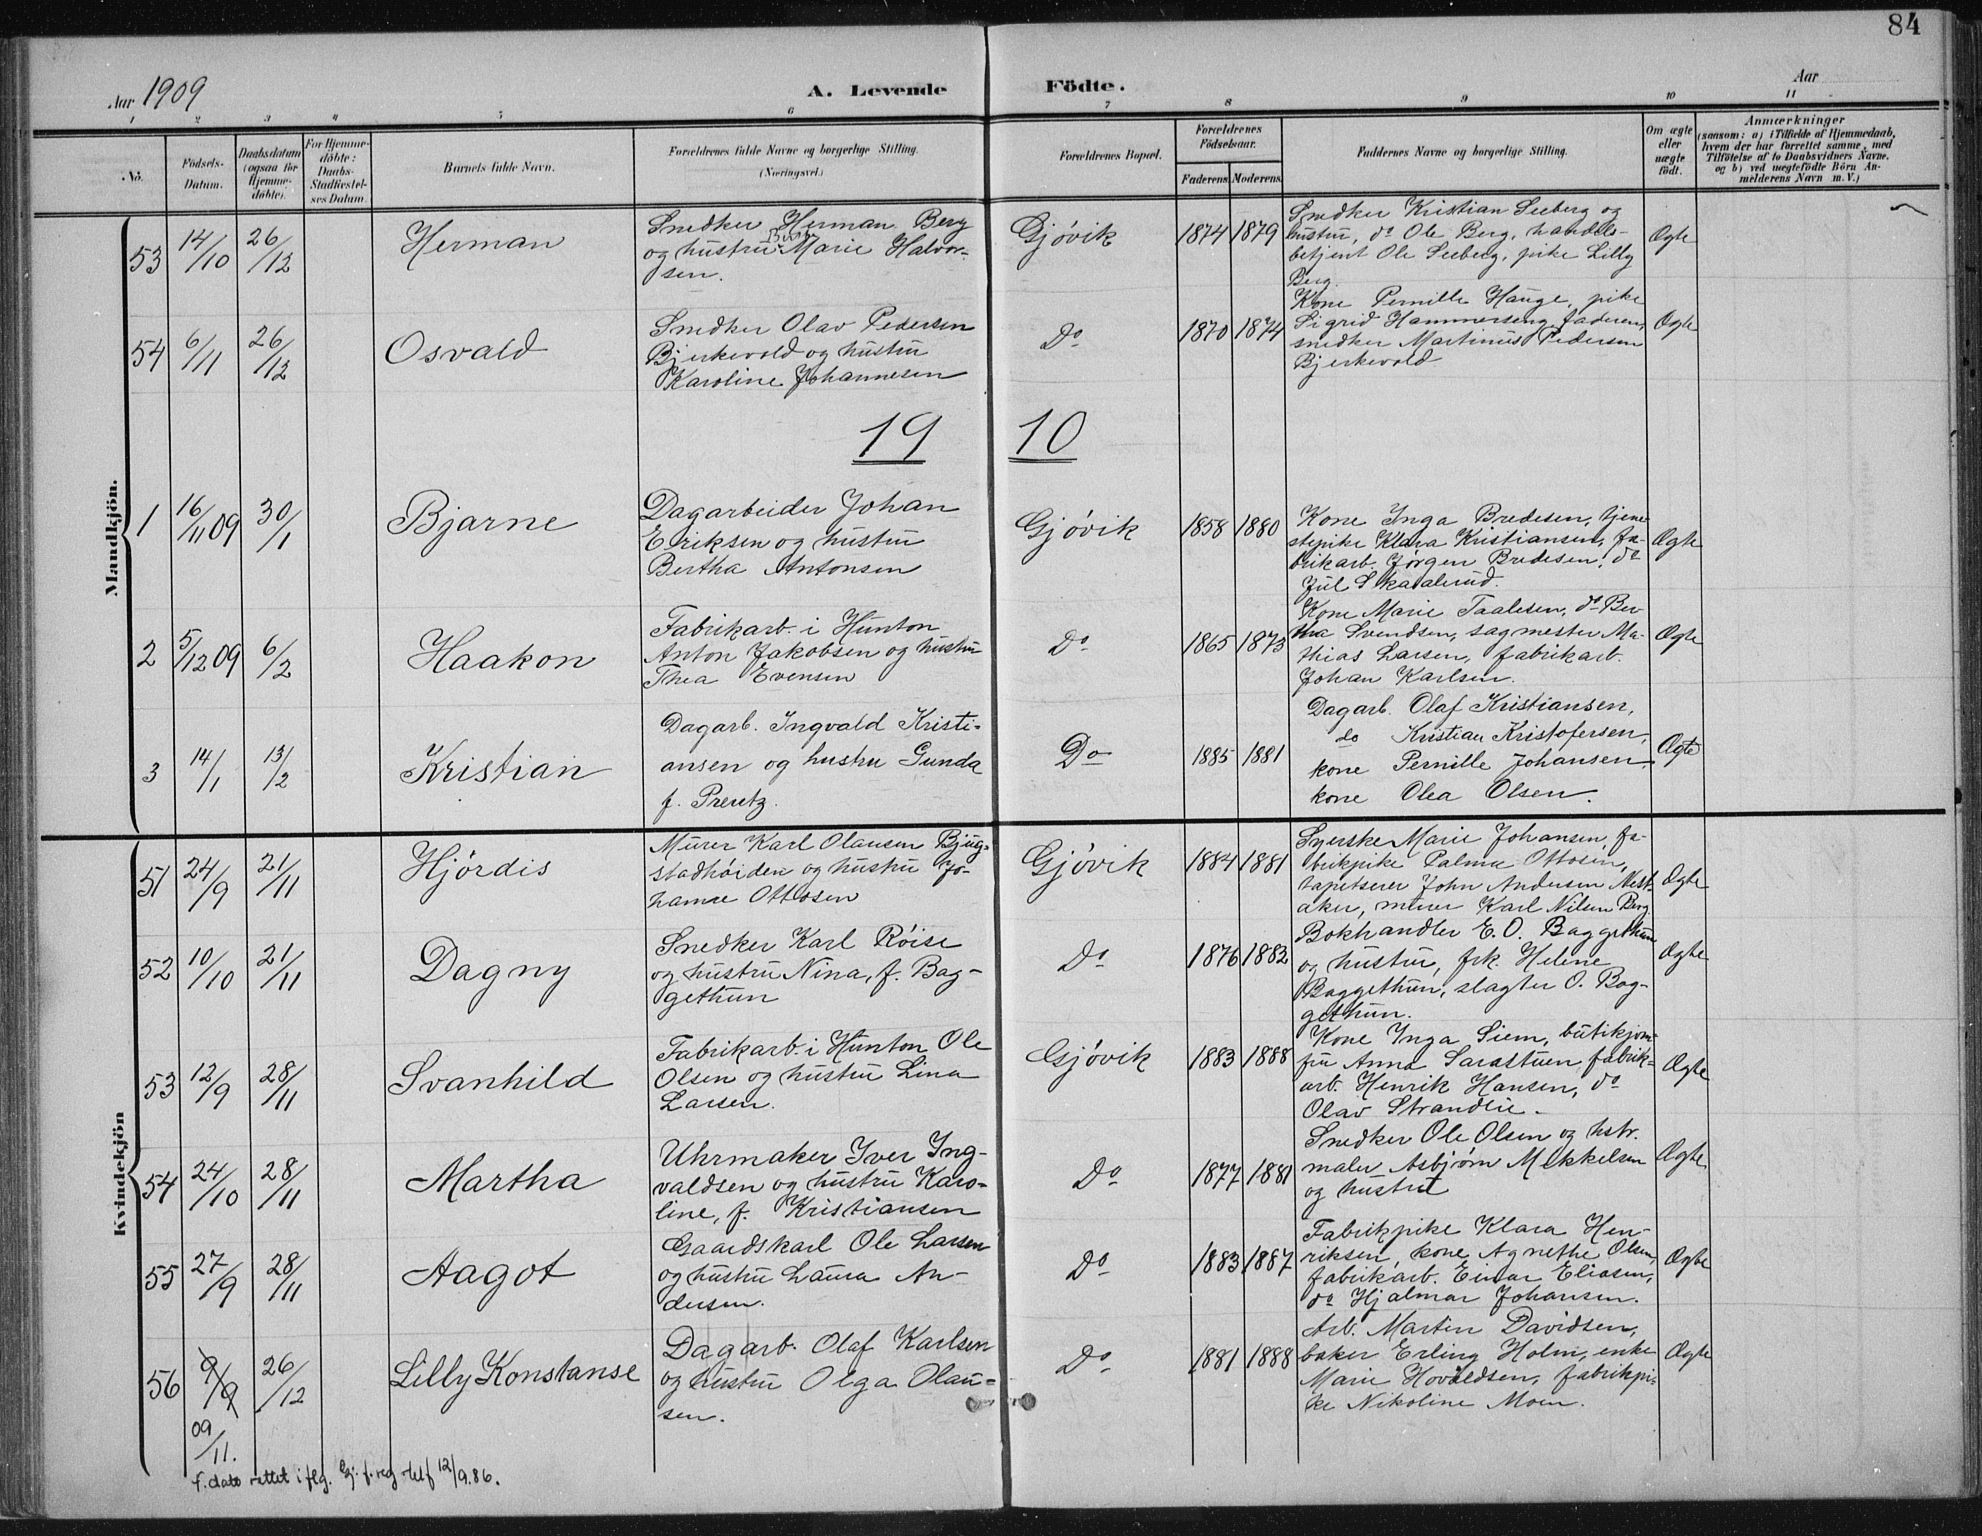 84
Aar 1909
A. Levende Födte.
Aar
1 2 3 4 5 6 7 8 9 10 11
No.
Födsels-
Datum.
Daabsdatum
(ogsaa for
Hjemme-
døbte).
For Hjemme-
døbte:
Daabs-
Stadfæstel-
ses Datum.
Barnets fulde Navn.
Forældrenes fulde Navne og borgerlige Stilling.
(Næringsvei.)
Forældrenes Bopæl.
Forældrenes
Fødselsaar.
Faderens. Moderens.
Faddernes Navne og borgerlige Stilling.
Om ægte
eller
uægte
født.
Anmærkninger
(saasom: a) i Tilfælde af Hjemmedaab,
hvem der har forrettet samme, med
Tilføielse af to Daabsvidners Navne,
og b) ved uægtefødte Börn An-
melderens Navn m. V.)
Mandkjön.
53 14/10 26/12 Herman
Snedker Herman Berg
og hustru Marie Halvor-
sen.
Gjøvik 1874 1879
Snedker Kristian Seeberg og
hustru, do Ole Berg, handels-
betjent Ole Seeberg, pike Lilly
Berg.
Ægte
54 6/11 26/12 Osvald
Snedker Olav Pedersen
Bjerkevold og hustru
Karoline Johannesen
Do 1870 1874
Kone Pernille Hauge, pike
Sigrid Hammerseng, faderen,
snedker Martinus Pedersen
Bjerkevold
Ægte
19 10
1 16/11 09 30/1 Bjarne
Dagarbeider Johan
Eriksen og hustru
Bertha Antonsen
Gjøvik 1858 1880
Kone Inga Bredesen, tjene-
stepike Klara Kristiansen, fa-
brikarb. Jørgen Bredesen, do
Jul Skaalerud.
Ægte
2 5/12 09 6/2 Haakon
Fabrikarb. i Hunton
Anton Jakobsen og hustru
Thea Evensen
Do 1865 1873
Kone Marie Taalesen, do Ber-
tha Svendsen, sagmester Ma-
thias Larsen, fabrikarb.
Johan Karlsen.
Ægte
3 14/1 13/2 Kristian
Dagarb. Ingvald Kristi-
ansen og hustru Gunda
f. Prentz.
Do 1885 1881
Dagarb. Olaf Kristiansen,
do Kristian Kristofersen,
kone Pernille Johansen,
kone Olea Olsen.
Ægte
Kvindekjön
51 24/9 21/11 Hjørdis
Murer Karl Olausen Bjug-
stadhøiden og hustru Jo-
hanne Ottosen
Gjøvik 1884 1881
Syerske Marie Johansen, fa-
brikpike Palma Ottosen,
tapetserer John Andersen Nest-
aker, murer Karl Nilsen Berg.
Ægte
52 10/10 21/11 Dagny
Snedker Karl Røise
og hustru Nina, f. Bag-
gethun
Do 1876 1882
Bokhandler E. O. Baggethun
og hustru, frk. Helene
Baggethun, slagter O. Bag-
gethun.
Ægte
53 12/9 28/11 Svanhild
Fabrikarb. i Hunton Ole
Olsen og hustru Lina
Larsen.
Gjøvik 1883 1888
Kone Inga Siem, butikjom-
fru Anna Sarastuen, fabrik-
arb. Henrik Hansen, do
Olav Strandlie.
Ægte
54 24/10 28/11 Martha
Uhrmaker Iver Ing-
valdsen og hustru Karo-
line, f. Kristiansen
Do 1877 1881
Snedker Ole Olsen og hstr.
maler Asbjørn Mikkelsen
og hustru
Ægte
55 27/9 28/11 Aagot
Gaardskarl Ole Larsen
og hustru Laura An-
dersen.
Do 1883 1887
Fabrikpike Klara Hen-
riksen, kone Agnethe Olsen,
fabrikarb. Einar Eliasen,
do Hjalmar Johansen.
Ægte
56 9/9 26/12 Lilly Konstanse
Dagarb. Olaf Karlsen
og hustru Olga Olau-
sen.
Do 1881 1888
Arb. Martin Davidsen,
baker Erling Holm, enke
Marie Hovaldsen, fabrikpi-
ke Nikoline Moen.
Ægte
09/11.
f. dato rettet i flg. f. reg. telf 12/9.86.